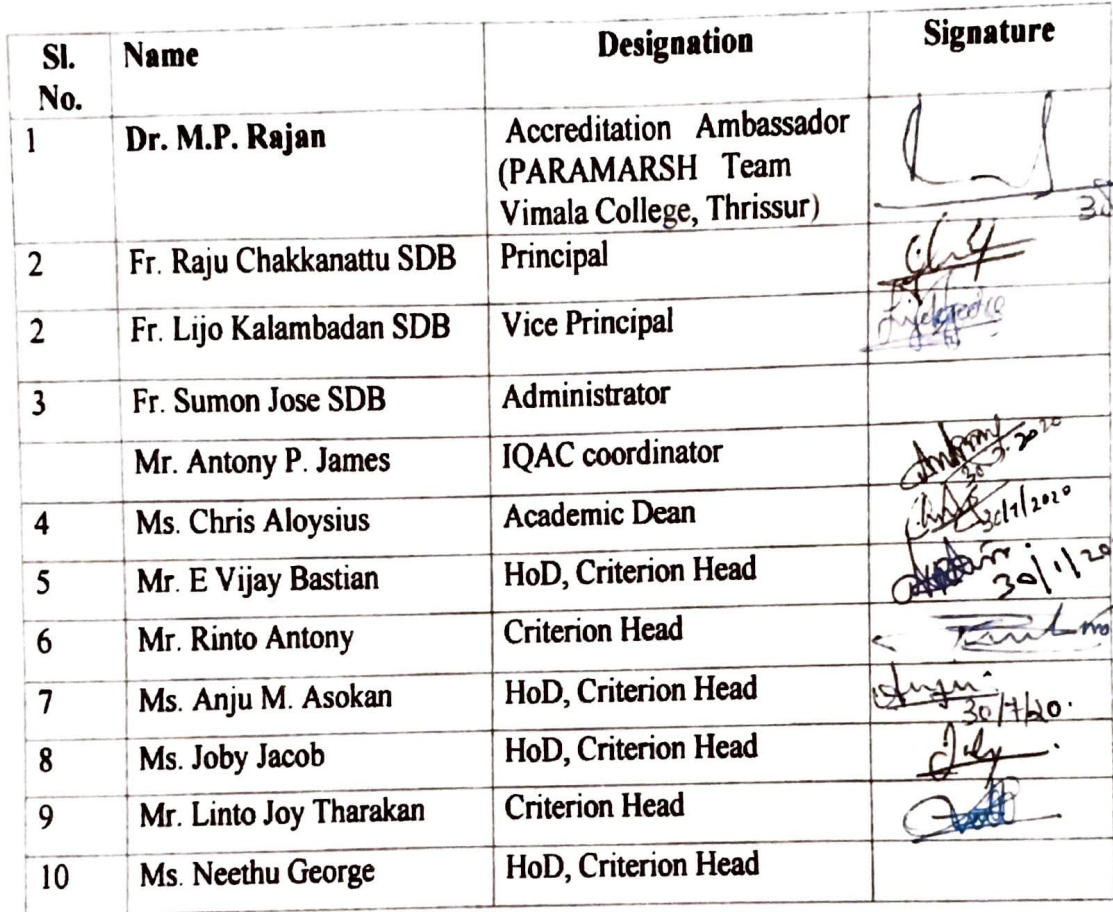 Sl. No. Name Designation Signature
1 Dr. M.P. Rajan Accreditation Ambassador
(PARAMARSH Team
Vimala College, Thrissur)
2 Fr. Raju Chakkanattu SDB Principal
2 Fr. Lijo Kalambadan SDB Vice Principal
3 Fr. Sumon Jose SDB Administrator
Mr. Antony P. James IQAC coordinator
4 Ms. Chris Aloysius Academic Dean
5 Mr. E Vijay Bastian HoD, Criterion Head 30/1/20
6 Mr. Rinto Antony Criterion Head
7 Ms. Anju M. Asokan HoD, Criterion Head
8 Ms. Joby Jacob HoD, Criterion Head
9 Mr. Linto Joy Tharakan Criterion Head
10 Ms. Neethu George HoD, Criterion Head